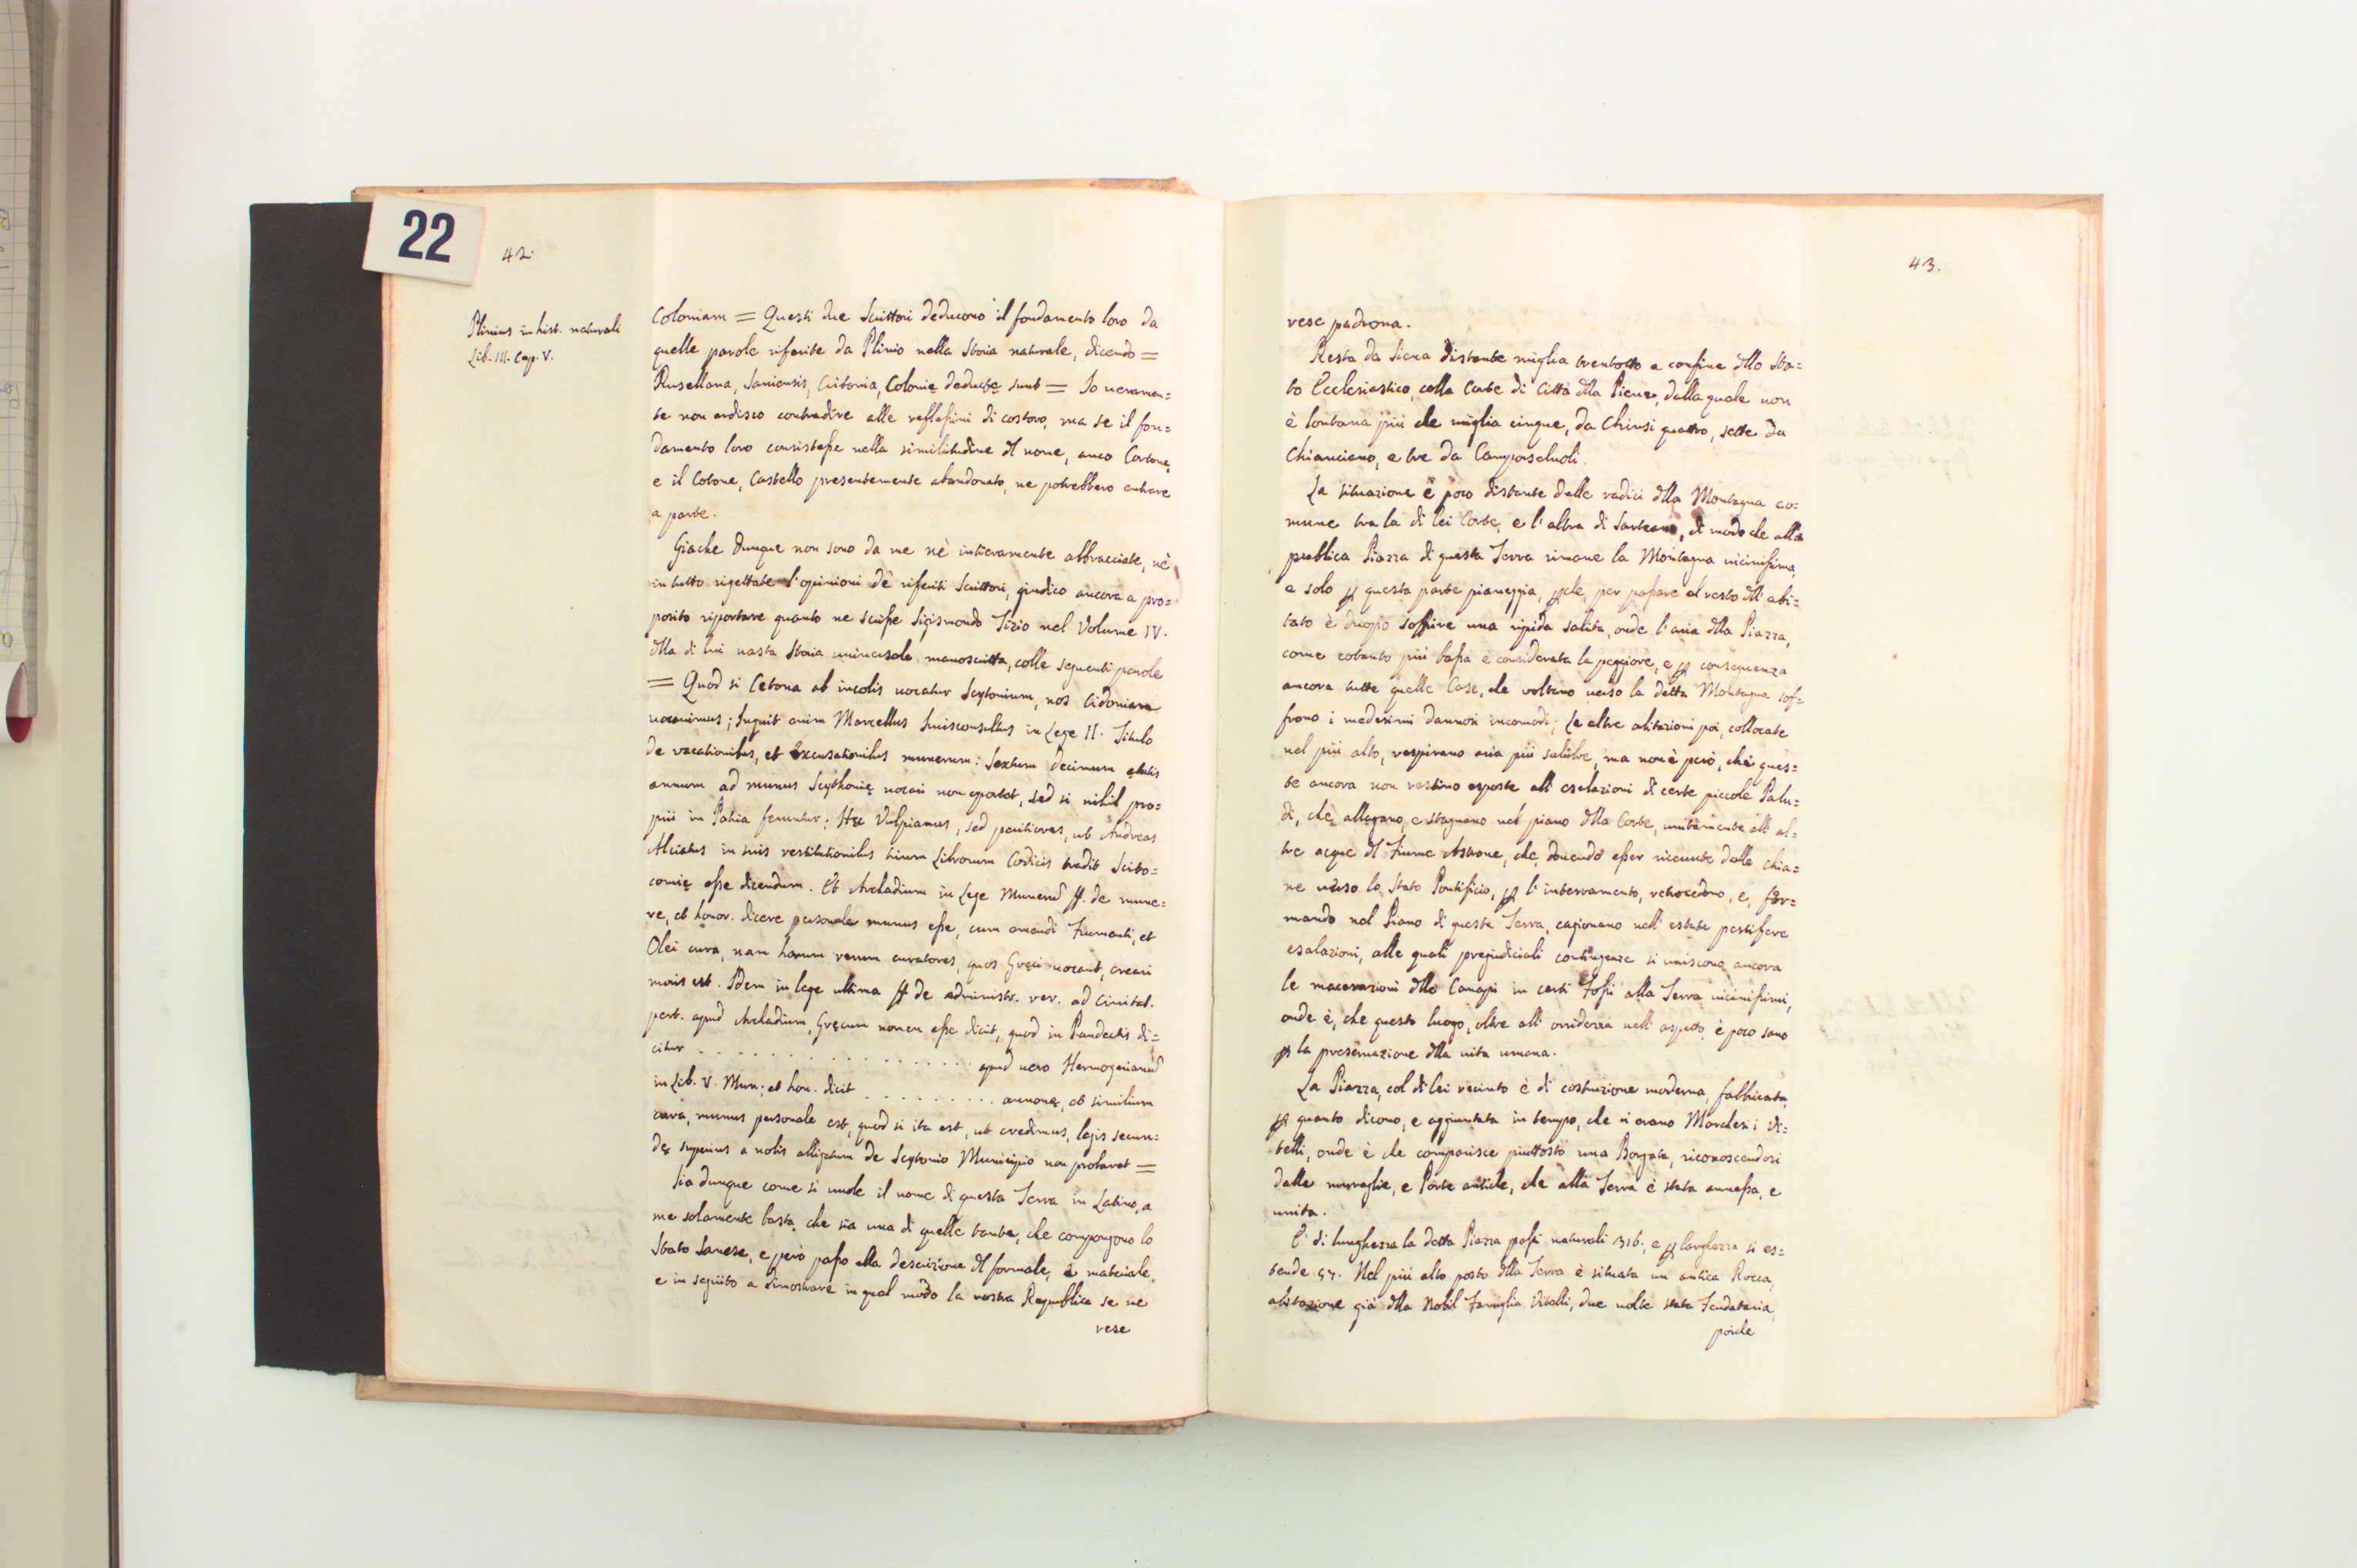 22
42.
Plinius in hist. naturali
Lib. III. Cap. V.
Coloniam = Questi due Scrittori deducono il fondamento loro da
quelle parole riferite da Plinio nella Storia naturale, dicendo =
Rusellana, Saniensis, Colonię deductę sunt = Io veramen=
te non ardisco contradire alle reflessioni di costoro, ma se il fon=
damento loro consistesse nella similitudine dl nome, anco Cortona,
e il Cotone, Castello presentemente abandonato, ne potrebbero entrare
a parte.
Giache dunque non sono da me nè intieramente abbracciate, nè
in tutto rigettate l'opinioni dè riferiti Scrittori, giudico ancora a pro=
posito riportare quanto ne scrisse Sigismondo Tizio nel Volume IV.
dlla di lui vasta Storia universale manoscritta, colle seguenti parole
= Quod si Cetona ab incolis vocatur Scytonium, nos Cidoniam
vocavimus; Inquit enim Marcellus Iurisconsultus in Lege II. Titulo
de vacationibus, et Excusationibus munerum: Sextum decimum ętatis
annum ad munus Scythonię vocari non oportet, sed si nihil pro=
prii in Patria feruntur; Hęc Vulpianus, sed peritiores, ut Andreas
Alciatus in suis restitutionibus trium Librorum Codicis tradit Scito=
comię esse dicendum. Et Archadium in Lege Munerũ ff. de mune=
re, et honor. dicere personale munus esse, cum emendi Frumenti, et
Olei cura, nam harum rerum curatores, quos Gręci vocant, creari
moris est. Idem in lege ultima ff de administr. rer. ad Civitat.
pert. apud Archadium, Gręcum nomen esse dicit, quod in Pandectis di=
citur . . . . . . . . . . . . . . . . . apud vero Hermogenianũ
in Lib. V. Mun; et hon. dicit . . . . . . . . . annonę, et similium
cura, munus personale est, quod si ita est, ut credimus, legis secun=
dę superius a nobis allegatum de Scytonio Municipio non probaret =
Sia dunque come si vuole il nome di questa Terra in Latino, a
me solamente basta, che sia una di quelle tante, che compongono lo
Stato Sanese, e però passo alla descrizione dl formale, e materiale,
e in seguito a dimostrare in qual modo la nostra Republica se ne
rese
43.
rese padrona.
Resta da Siena distante miglia trentotto a confine dllo Sta=
to Ecclesiastico, colla Corte di Città dlla Pieve, dalla quale non
è lontana più de miglia cinque, da Chiusi quattro, sette da
Chianciano, e tre da Camporselvoli.
La situazione è poco distante dalle radici dlla Montagna co=
mune tra la di lei Corte, e l'altra di Sarteano, di modo che alla
publica Piazza di questa Terra rimane la Montagna vicinissima,
e solo p questa parte pianeggia, pche, per passare al resto dll'abi=
tato è duopo soffrire una ripida salita, onde l'aria dlla Piazza,
come cotanto più bassa è considerata la peggiore, e p conseguenza
ancora tutte quelle Case, che voltano verso la detta Montagna sof=
frono i medesimi dannosi incomodi; Le altre abitazioni poi, collocate
nel più alto, respirano aria più salubre, ma non è però, che ques=
te ancora non restino esposte all'esalazioni di certe piccole Palu=
di, che allagano, e stagnano nel piano dlla Corte, unitamente all'al=
tre acque dl Fiume Astrone, che, dovendo esser ricevute dalle Chia=
ne verso lo Stato Pontificio, p l'interramento, retrocedono, e, for=
mando nel Piano di questa Terra, cagionano nell'estate pestifere
esalazioni, alle quali pregiudiciali contingenze si uniscono ancora
le macerazioni dlla Canapi in certi Fossi alla Terra vicinissimi,
onde è, che questo luogo, oltre all'orridezza nell'aspetto, è poco sano
p la preservazione dlla vita umana.
La Piazza, col di lei recinto è di costruzione moderna, fabbricata,
p quanto dicono, e aggiuntata in tempo, che vi erano Marchesi i Vi=
telli, onde è che comparisce piuttosto una Borgata, riconoscendosi
dalle muraglie, e Porte antiche, che alla Terra è stata annessa, e
unita.
E' di lunghezza la detta Piazza passi naturali 316., e p larghezza si es=
tende 57. Nel più alto posto dlla Terra è situata un'antica Rocca,
abitazione già dlla Nobil Famiglia Vitelli, due volte stata Feudataria,
poiche